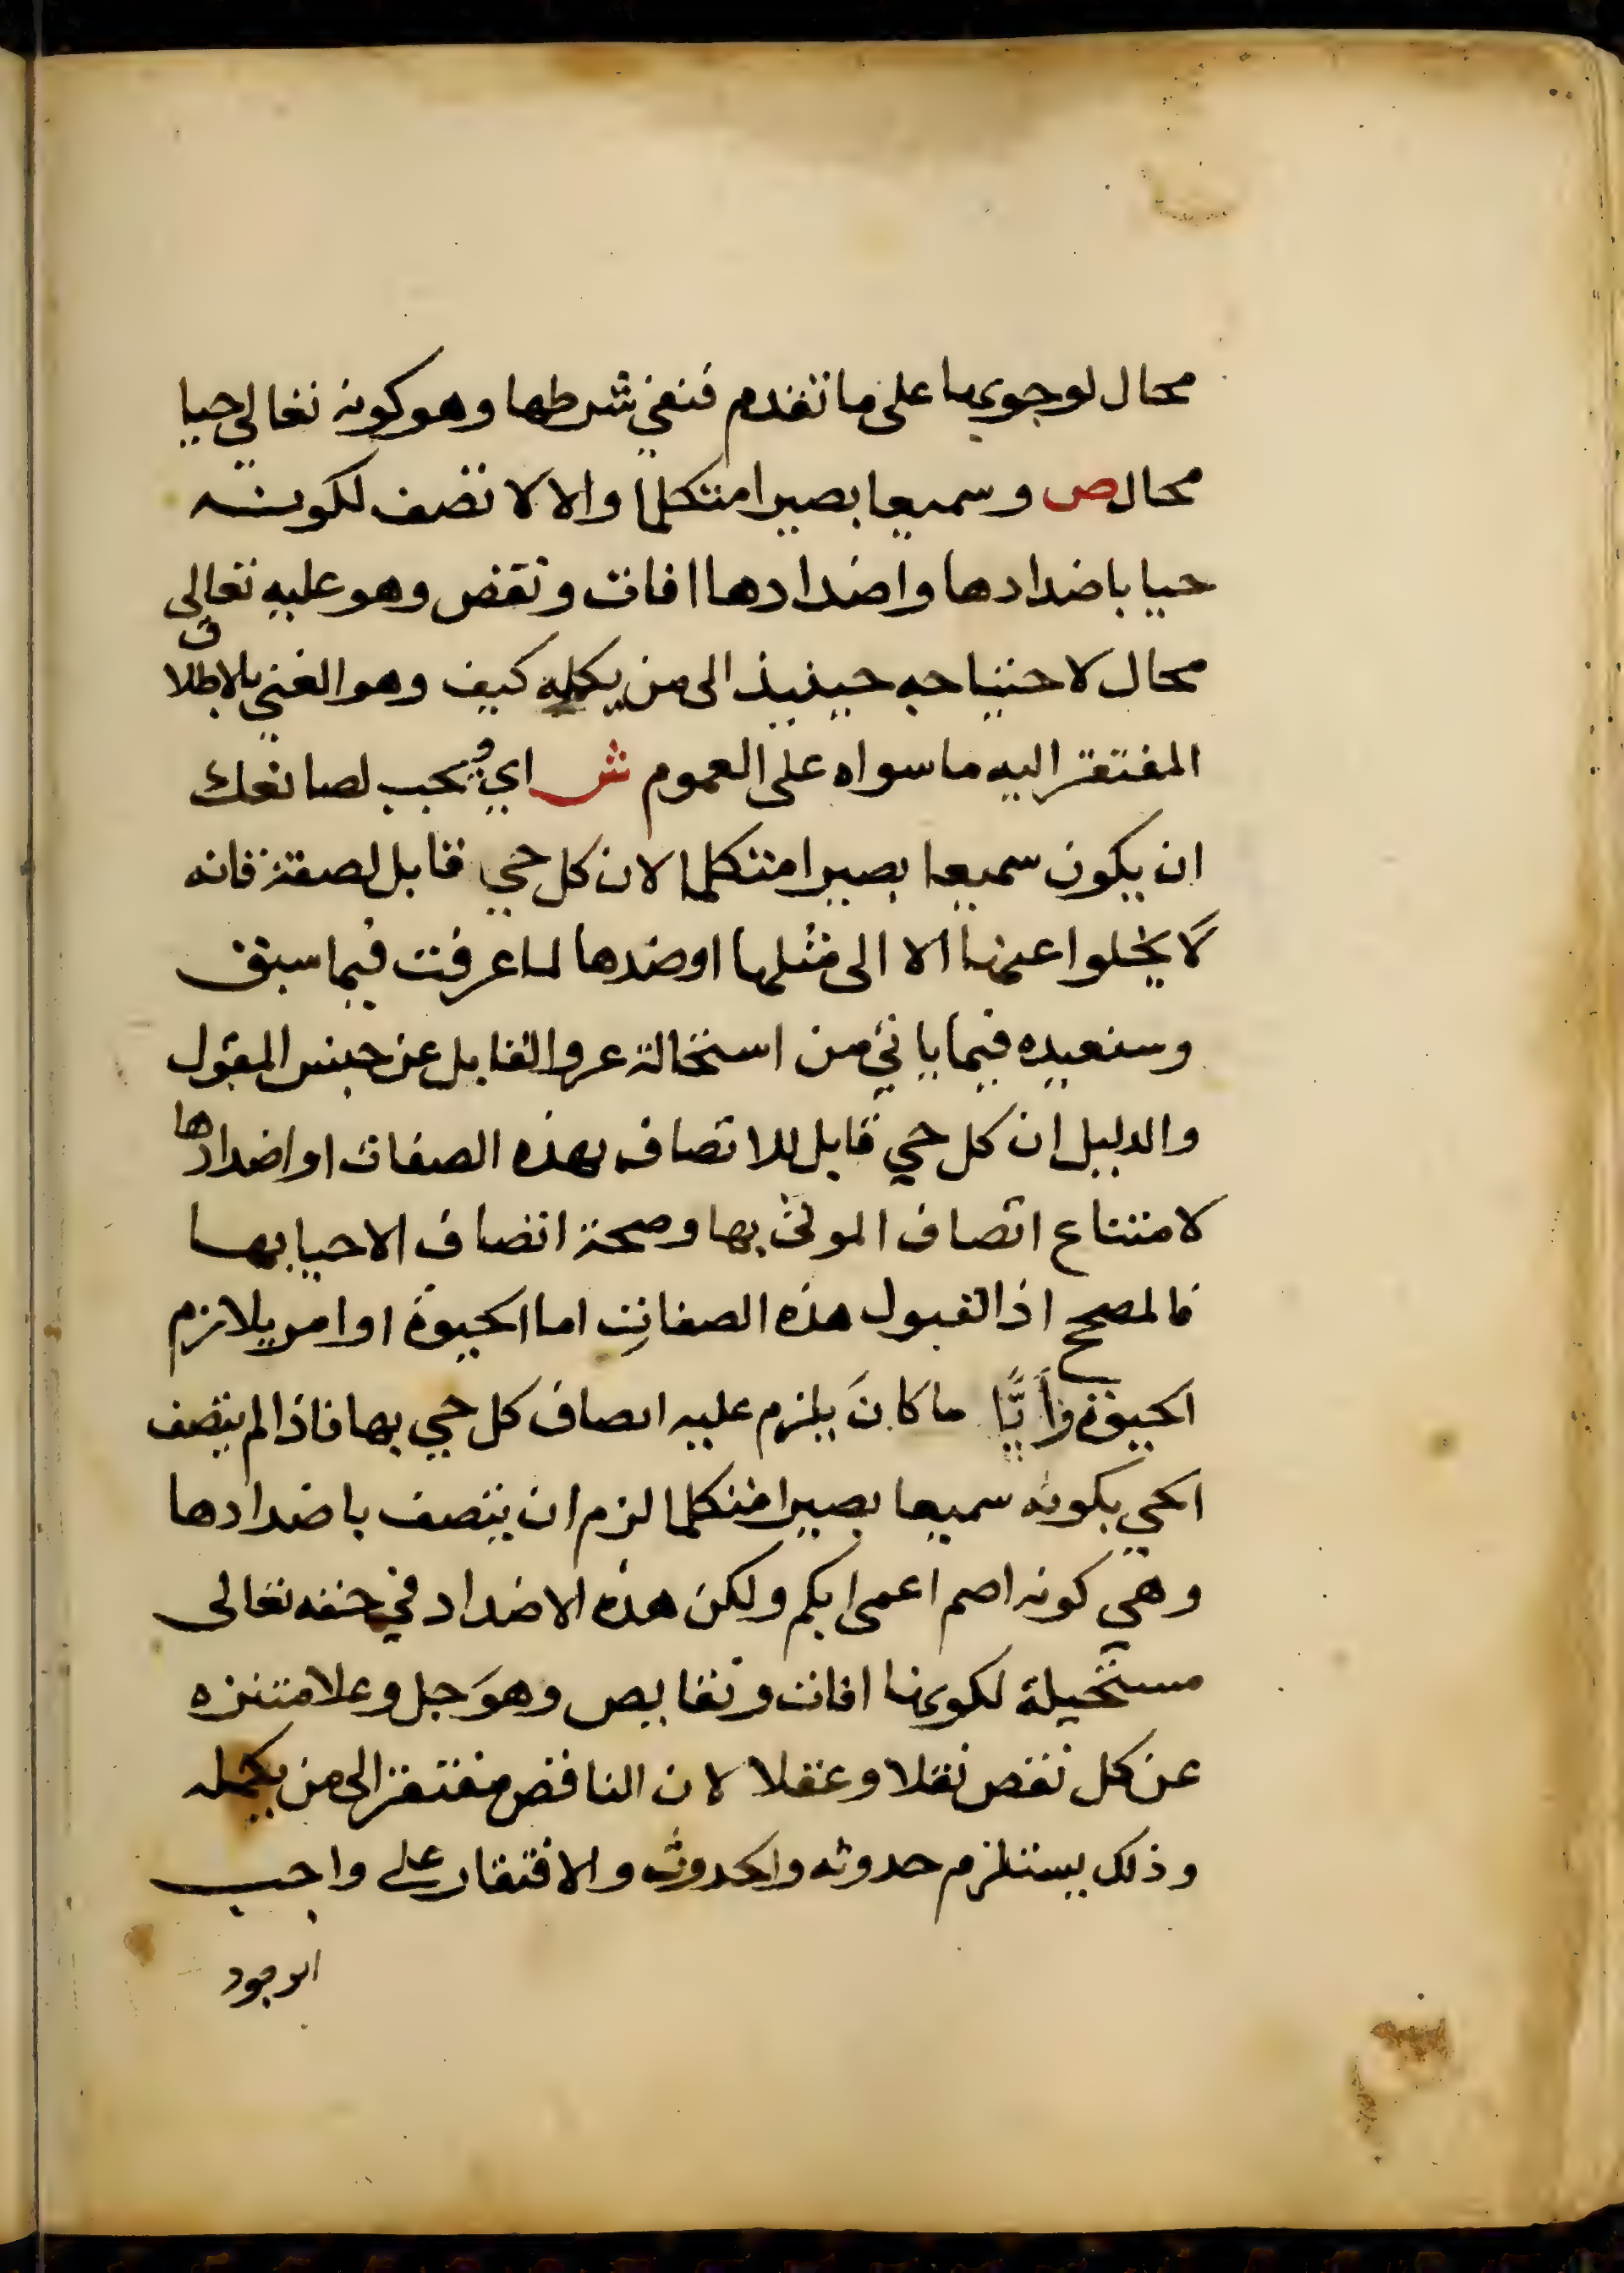 محال لوجوبها على ما تقدم فنفي شرطها وهو كونه تعالى حيا
محال ص وسميعا بصيرا متكلما والا لا تصف لكونه
حيا باضدادها واضدادها افات ونقص وهو عليه تعالى
محال لاحتياجه حينيذ الى من يكمله كيف وهو الغني بالاطلاق
المفتقر اليه ما سواه على العموم ش اي ويجب لصانعك
ان يكون سميعا بصيرا متكلما لان كل حي قابل لصفة فانه
لا يخلوا عنها الا الى مثلها او ضدها لما عرفت فيما سبق
وسنعيده فيما ياتي من استحالة عرو القابل عن جنس المقبول
والدليل ان كل حي قابل للاتصاف بهذه الصفات او اضدادها
لامتناع اتصاف الموتى بها وصحة اتصاف الاحيا بها
فالمصحح اذا لقبول هذه الصفات اما الحيوة او امر يلازم
الحيوة وأيًّا ما كانَ يلزم عليه اتصاف كل حي بها فاذا لم يتصف
الحي بكونه سميعا بصيرا متكلما لزم ان يتصف باضدادها
وهي كونه اصم اعمى ابكم ولكن هذه الاضداد في حقه تعالى
مستحيلة لكونها افات ونقايص وهوَ جل وعلا متنزه
عن كل نقص نقلا وعقلا لان الناقص مفتقر الى من يكمله
وذلك يستلزم حدوثه والحدوث والافتقار على واجب
الوجود